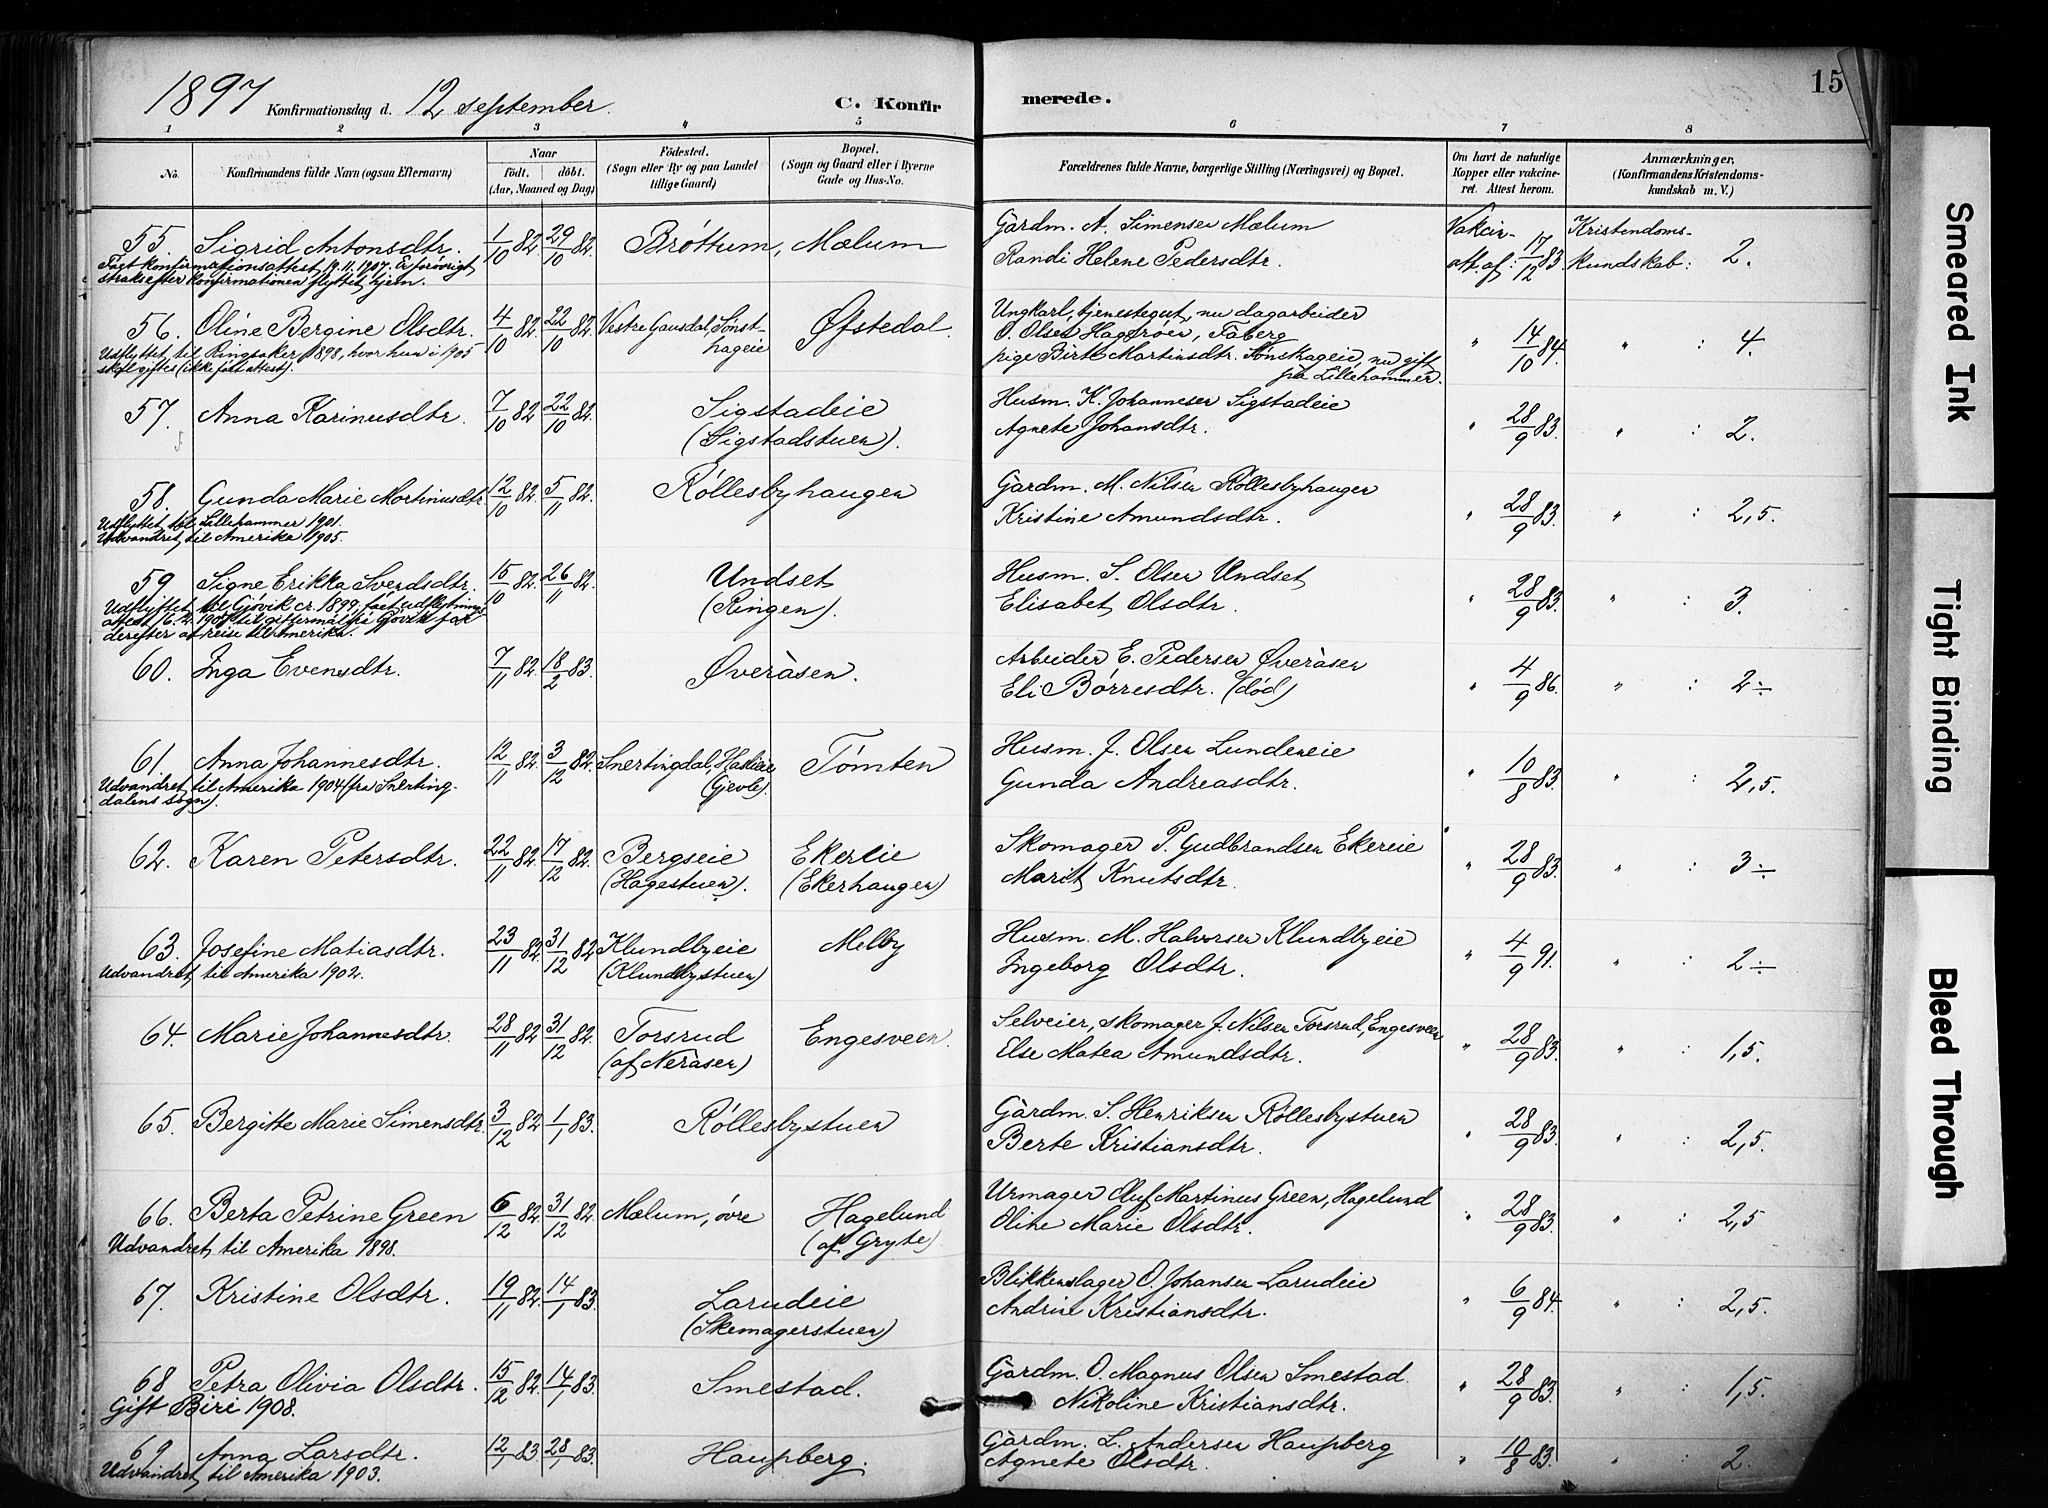 1897 Konfirmationsdag d. 12 september. C. Konfirmerede. 15
1 2 3 4 5 6 7 8
No. Konfirmandens fulde Navn (ogsaa Efternavn) Naar født. døbt. (Aar, Maaned og Dag) Fødested. (Sogn eller By og paa Landet tillige Gaard) Bopæl. (Sogn og Gaard eller i Byerne Gade og Hus-No. Forældrenes fulde Navne, borgerlige Stilling (Næringsvei) og Bopæl. Om havt de naturlige Kopper eller vakcineret. Attest herom. Anmærkninger, (Konfirmandens Kristendomskundskab m. V.)
55. Sigrid Antonsdtr. 1/10 82. 29/10 82. Brøttum, Mælum Gårdm. A. Simensen Mælum Vakcin- Kristendoms-
Randi Helene Pedersdtr. att. af: 17/12 83 kundskab: 2.
Fået konfirmationsattest 19.11.1907. Er forøvrigt
straks efter konfirmationen flyttet hjem.
56. Oline Bergine Olsdtr. 4/10 82. 22/10 82. Vestre Gausdal, Sønst-hageie Øfstedal. Ungkarl, tjenestegut, nu dagarbeider
O. Olsen Hagerøen, Fåberg " 14/10 84. " 4.
pige Birte Martinsdtr. Sønsthageie, nu gift
på Lillehammer.
Udflyttet til Ringsaker 1898, hvor hun i 1905
skal giftes (ikke fået attest).
57. Anna Karinusdtr. 7/10 82 22/10 82. Sigstadeie Husm. K. Johannesen Sigstadeie
(Sigstadstuen). Agnete Johansdtr. " 28/9 83. " : 2.
58. Gunda Marie Mortinusdtr. 12/10 82. 5/11 82. Røllesbyhaugen Gårdm. M. Nilsen Røllesbyhaugen
Kristine Amundsdtr. " 28/9 83. " : 2,5.
Udflyttet til Lillehammer 1901.
Udvandret til Amerika 1905.
59 Signe Erikka Svendsdtr. 15/10 82. 26/11 82. Undset Husm. S. Olsen Undset
(Ringen). Elisabet Olsdtr. " 28/9 83. " : 3.
Udflyttet til Gjøvik cr. 1899. fået udflytnings
derefter at reise til Amerika.
60. Inga Evensdtr. 7/11 82. 18/2 83. Øveråsen. Arbeider E. Pedersen Øveråsen
Eli Børresdtr. (død) " 4/9 86. " : 2÷
61. Anna Johannesdtr. 12/11 82. 3/12 82. Snertingdal, (Gjevle). Tømten Husm. J. Olsen Lundeneie
Gunda Andreasdtr. " 10/8 83. " : 2,5.
Udvandret til Amerika 1904 (fra Snerting-
dalens sogn).
62. Karen Petersdtr. 22/11 82. 17/12 82. Bergseie Ekereie Skomager P. Gudbrandsen Ekereie
(Hagestuen). (Ekerhaugen) Marit Knutsdtr. " 28/9 83. " : 3÷
63. Josefine Matiasdtr. 23/11 82. 31/12 82 Klundbyeie Melby Husm. M. Halvorsen Klundbyeie
(Klundbystuen) Ingeborg Olsdtr. " 4/9 91. " : 2÷
Udvandret til Amerika 1902.
64. Marie Johannesdtr. 28/11 82. 31/12 82. Torsrud Engesveen. Selveier, skomager J. Nilsen Torsrud, Engesveen
(af Neråsen) Else Matea Amundsdtr. " 28/9 83. " : 1,5.
65. Bergitte Marie Simensdtr. 3/12 82 1/1 83. Røllesbystuen Gårdm. S. Henriksen Røllesbystuen
Berte Kristiansdtr. " 28/9 83. " : 2,5.
66. Berta Petrine Green 6/12 82. 31/12 82. Mælum, øvre Hagelund Urmager Oluf Martinus Green, Hagelund
(af Gryte) Oline Marie Olsdtr. " 28/9 83. " : 2,5
Udvandret til Amerika 1898.
67. Kristine Olsdtr. 19/11 82. 14/1 83. Larudeie Blikkenslager O. Johansen Larudeie
(Skomagerstuen) Andrine Kristiansdtr. " 6/9 84. " : 2,5.
68 Petra Olivia Olsdtr. 15/12 82. 14/1 83. Smestad. Gårdm. O. Magnus Olsen Smestad.
Gift Biri 1908. Nikoline Kristiansdtr. " 28/9 83. " : 1,5.
69 Anna Larsdtr. 12/1 83. 28/1 83. Haugberg. Gårdm. L. Andersen Haugberg
Udvandret til Amerika 1903. Agnete Olsdtr. " 10/8 83. " : 2.
Smeared Ink
Tight Binding
Bleed Through